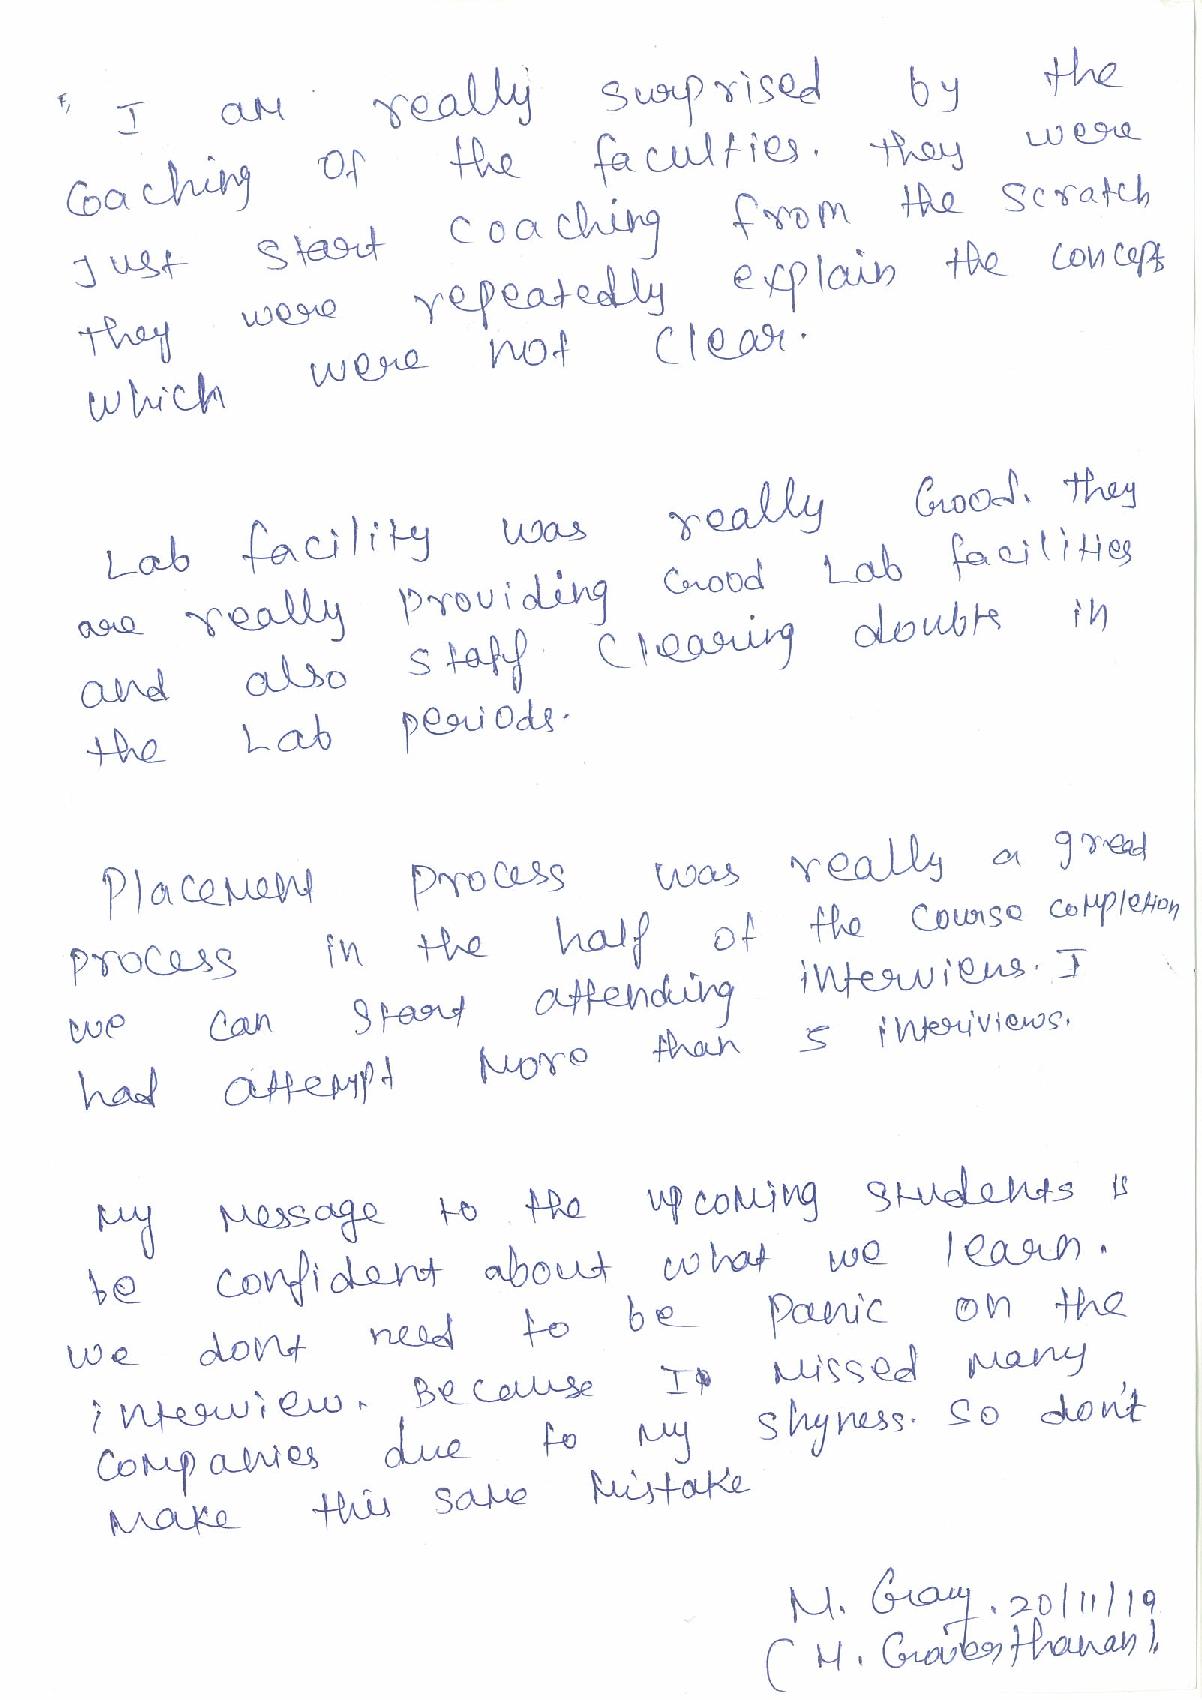 I am really surprised by the
Coaching of the faculties. they were
Just start coaching from the scratch
they were repeatedly explain the concepts
which were not clear.
Lab facility was really Good. they
are really providing Good Lab facilities
and also staff clearing doubts in
the Lab periods.
Placement process was really a great
process in the half of the course completion
we can start attending interviews. I
had attempt more than 5 interiviews.
My Message to the upcoming students is
be confident about what we learn.
we dont need to be Panic on the
interview. Because I missed many
Companies due to my shyness. So don't
make this same Mistake
M. 20/11/19